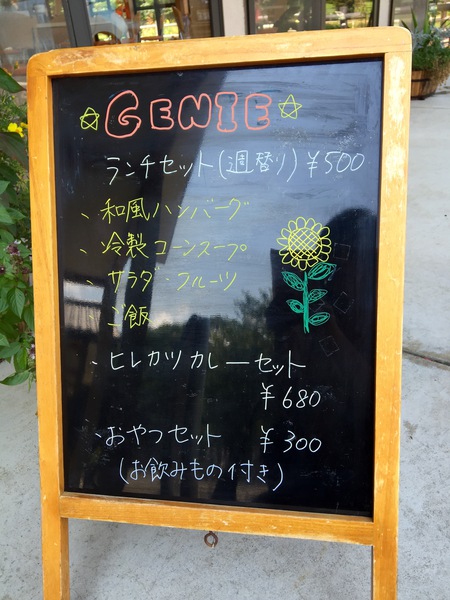 ☆GENIE☆
ランチセット(週替り) ¥500
、和風ハンバーグ
、冷製コーンスープ
、サラダ・フルーツ
、ご飯
、ヒレカツカレーセット
¥680
、おやつセット ¥300
(お飲みもの付き)